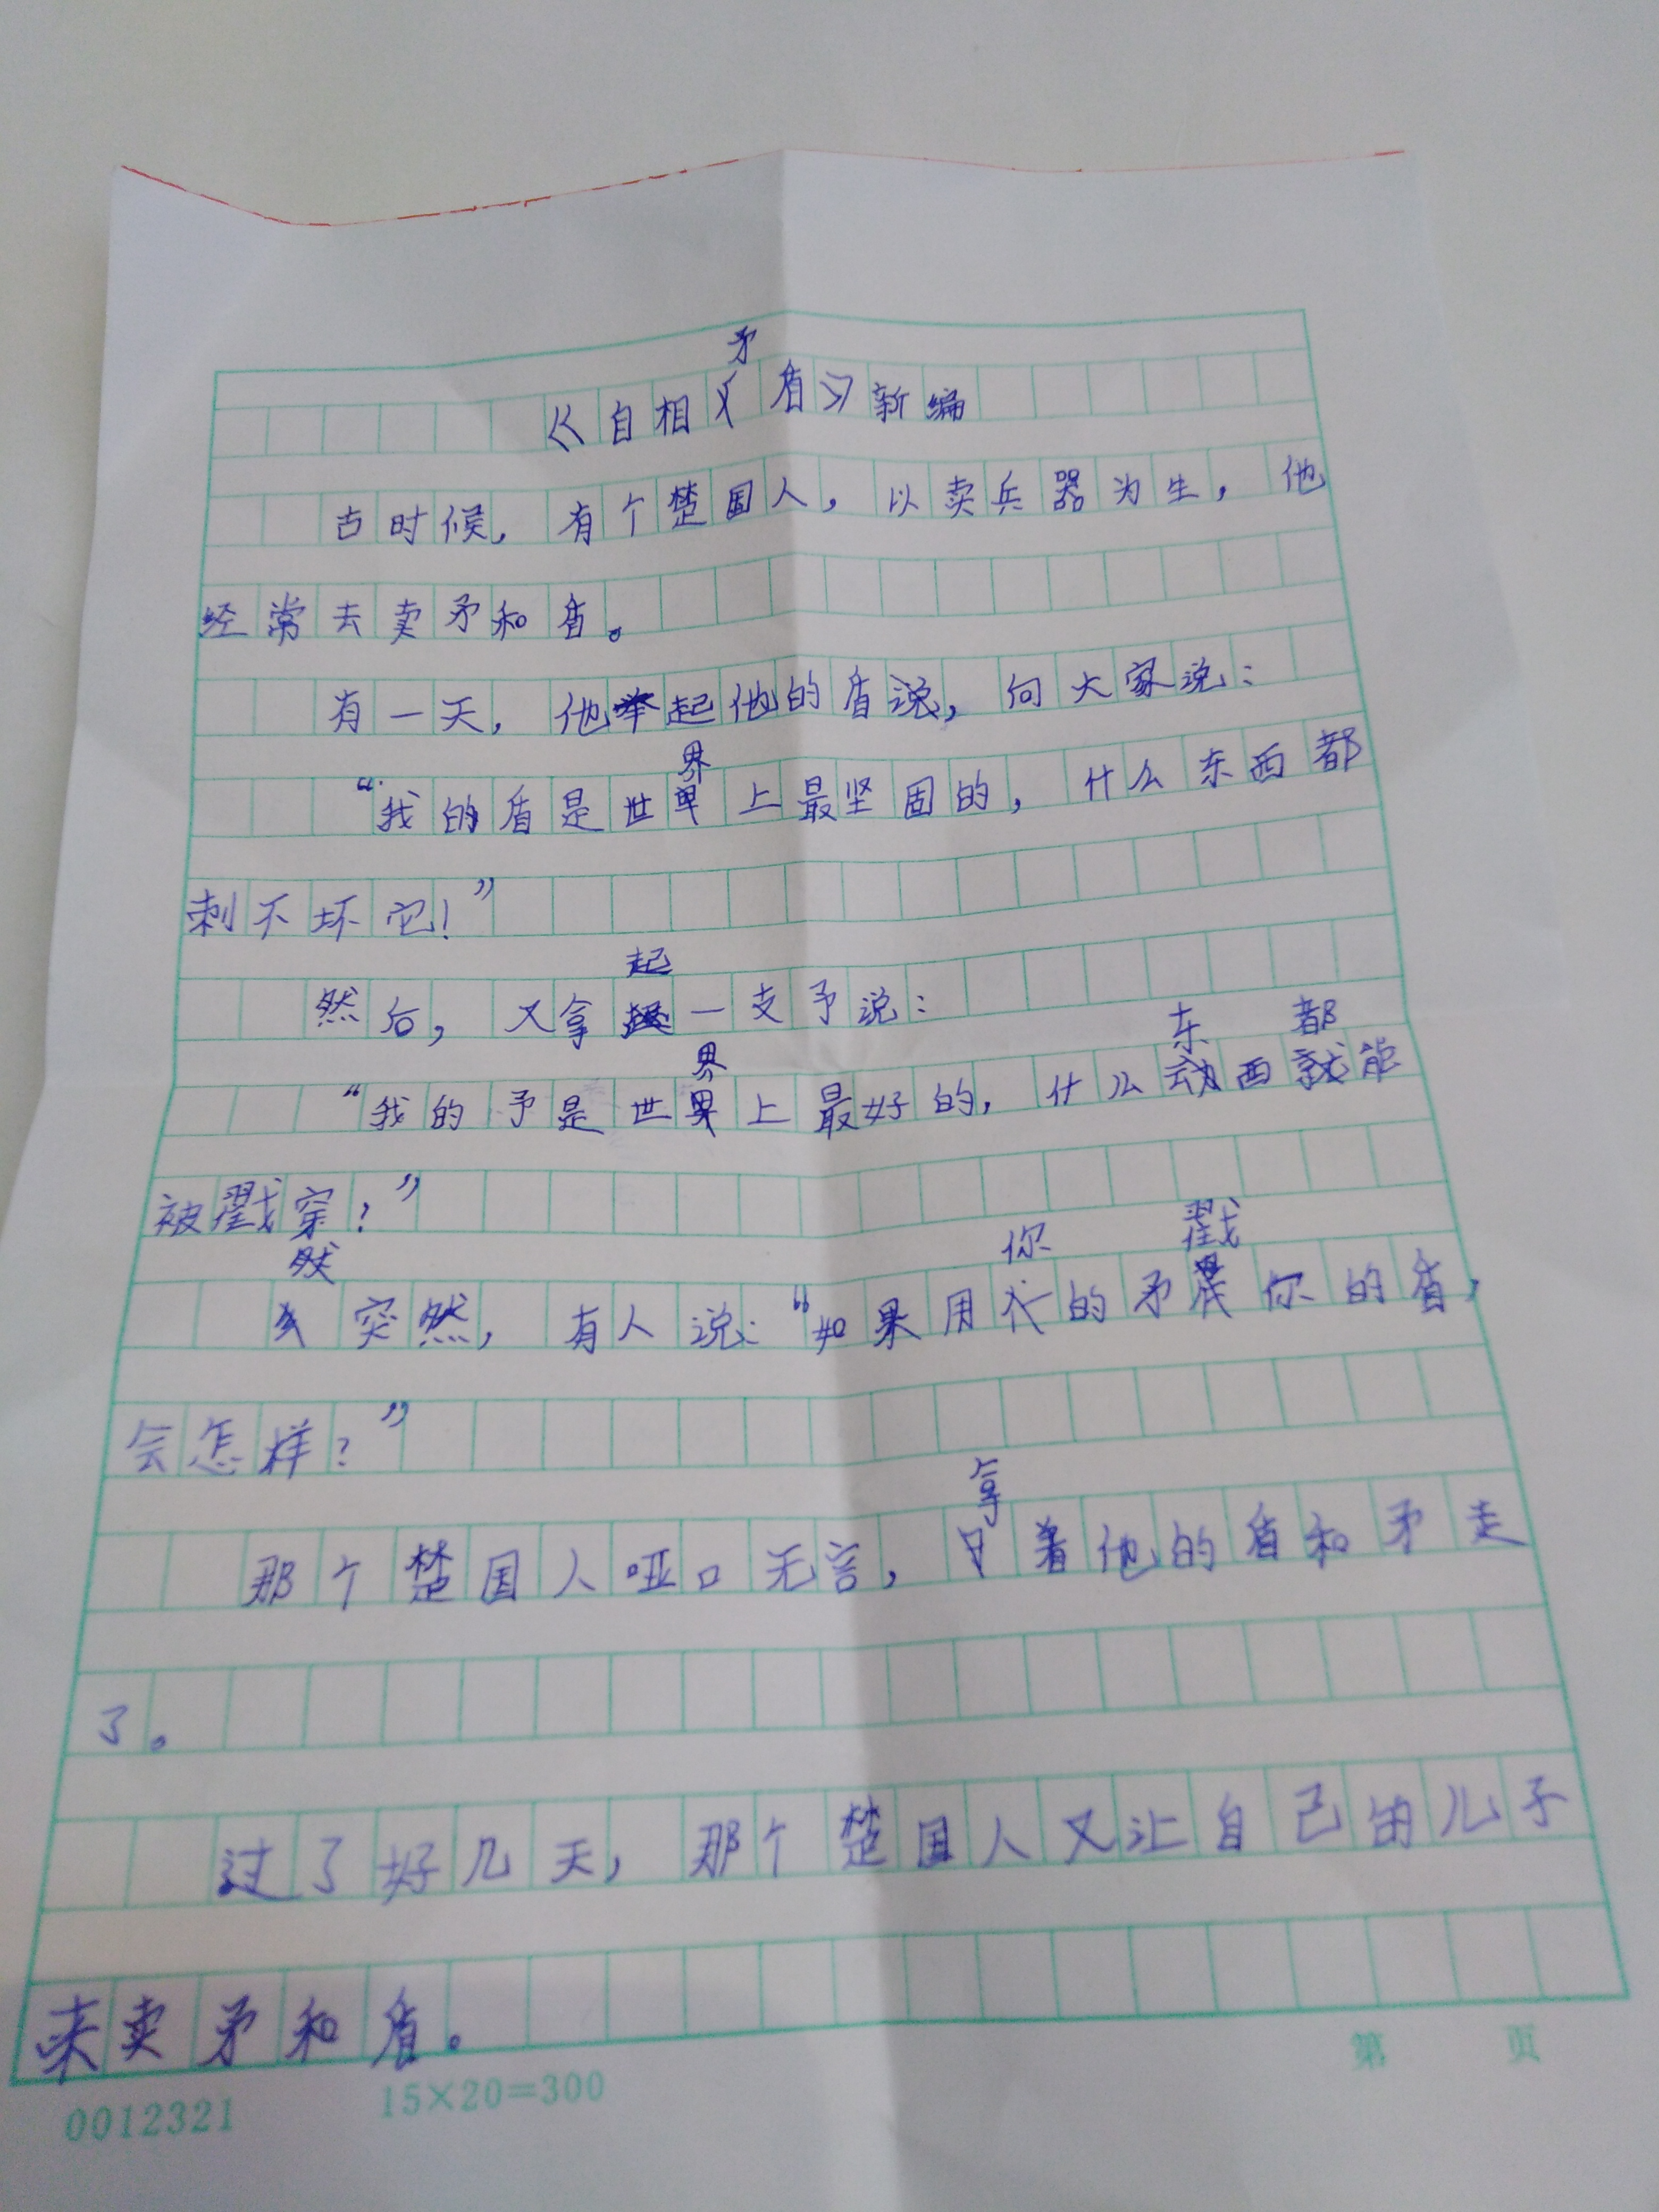 《自相矛盾》新编
古时候，有个楚国人，以卖兵器为生，他
经常去卖矛和盾。
有一天，他举起他的盾说，向大家说：
“我的盾是世界上最坚固的，什么东西都
刺不坏它！”
然后，又拿起一支予说：
“我的予是世界上最好的，什么东西都能
被戳穿？”
突然，有人说：“如果用你的矛戳你的盾，
会怎样？”
那个楚国人哑口无言，拿着他的盾和矛走
了。
过了好几天，那个楚国人又让自己的儿子
来卖矛和盾。
0012321 15×20=300 第 页